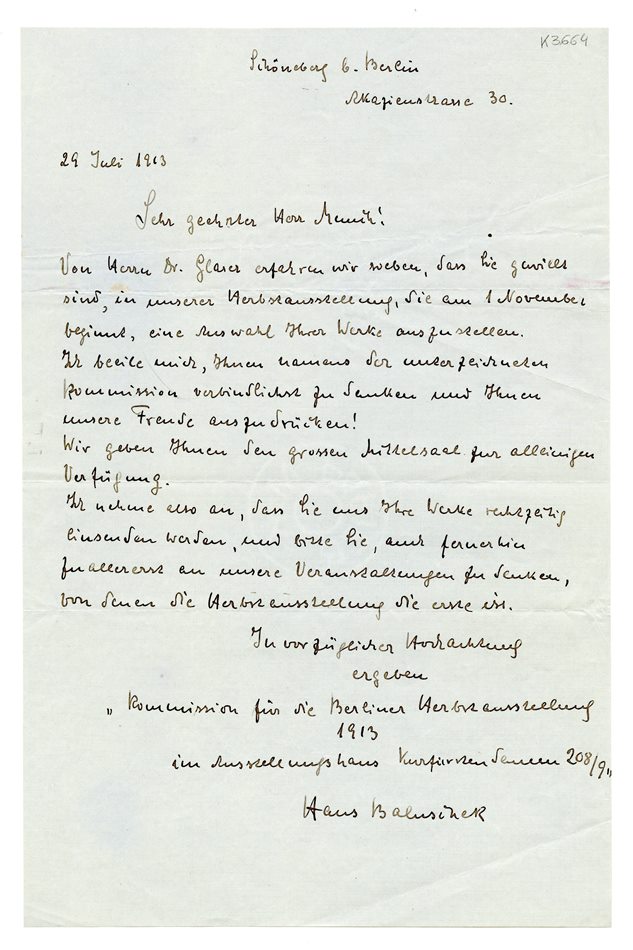 K3664
Schöneberg b. Berlin
Akazienstrasse 30.
29 Juli 1913
Sehr geehrter Herr Munch!
Von Herrn Dr. Glaser erfahren wir soeben, dass Sie gewillt
sind, in unserer Herbstausstellung, die am 1 November
beginnt, eine Auswahl Ihrer Werke auszustellen.
Ich beeile mich, Ihnen namens der unterzeichneten
Kommission verbindlichst zu danken und Ihnen
unsere Freude auszudrücken!
Wir geben Ihnen den grossen Mittelsaal zur alleinigen
Verfügung.
Ich nehme also an, dass Sie uns Ihre Werke rechtzeitig
einsenden werden, und bitte Sie, auch fernerhin
zuallererst an unsere Veranstaltungen zu denken,
von denen die Herbstausstellung die erste ist.
In vorzüglicher Hochachtung
ergeben
„Kommission für die Berliner Herbstausstellung
1913
im Ausstellungshaus Kurfürstendamm 208/9„
Hans Baluschek